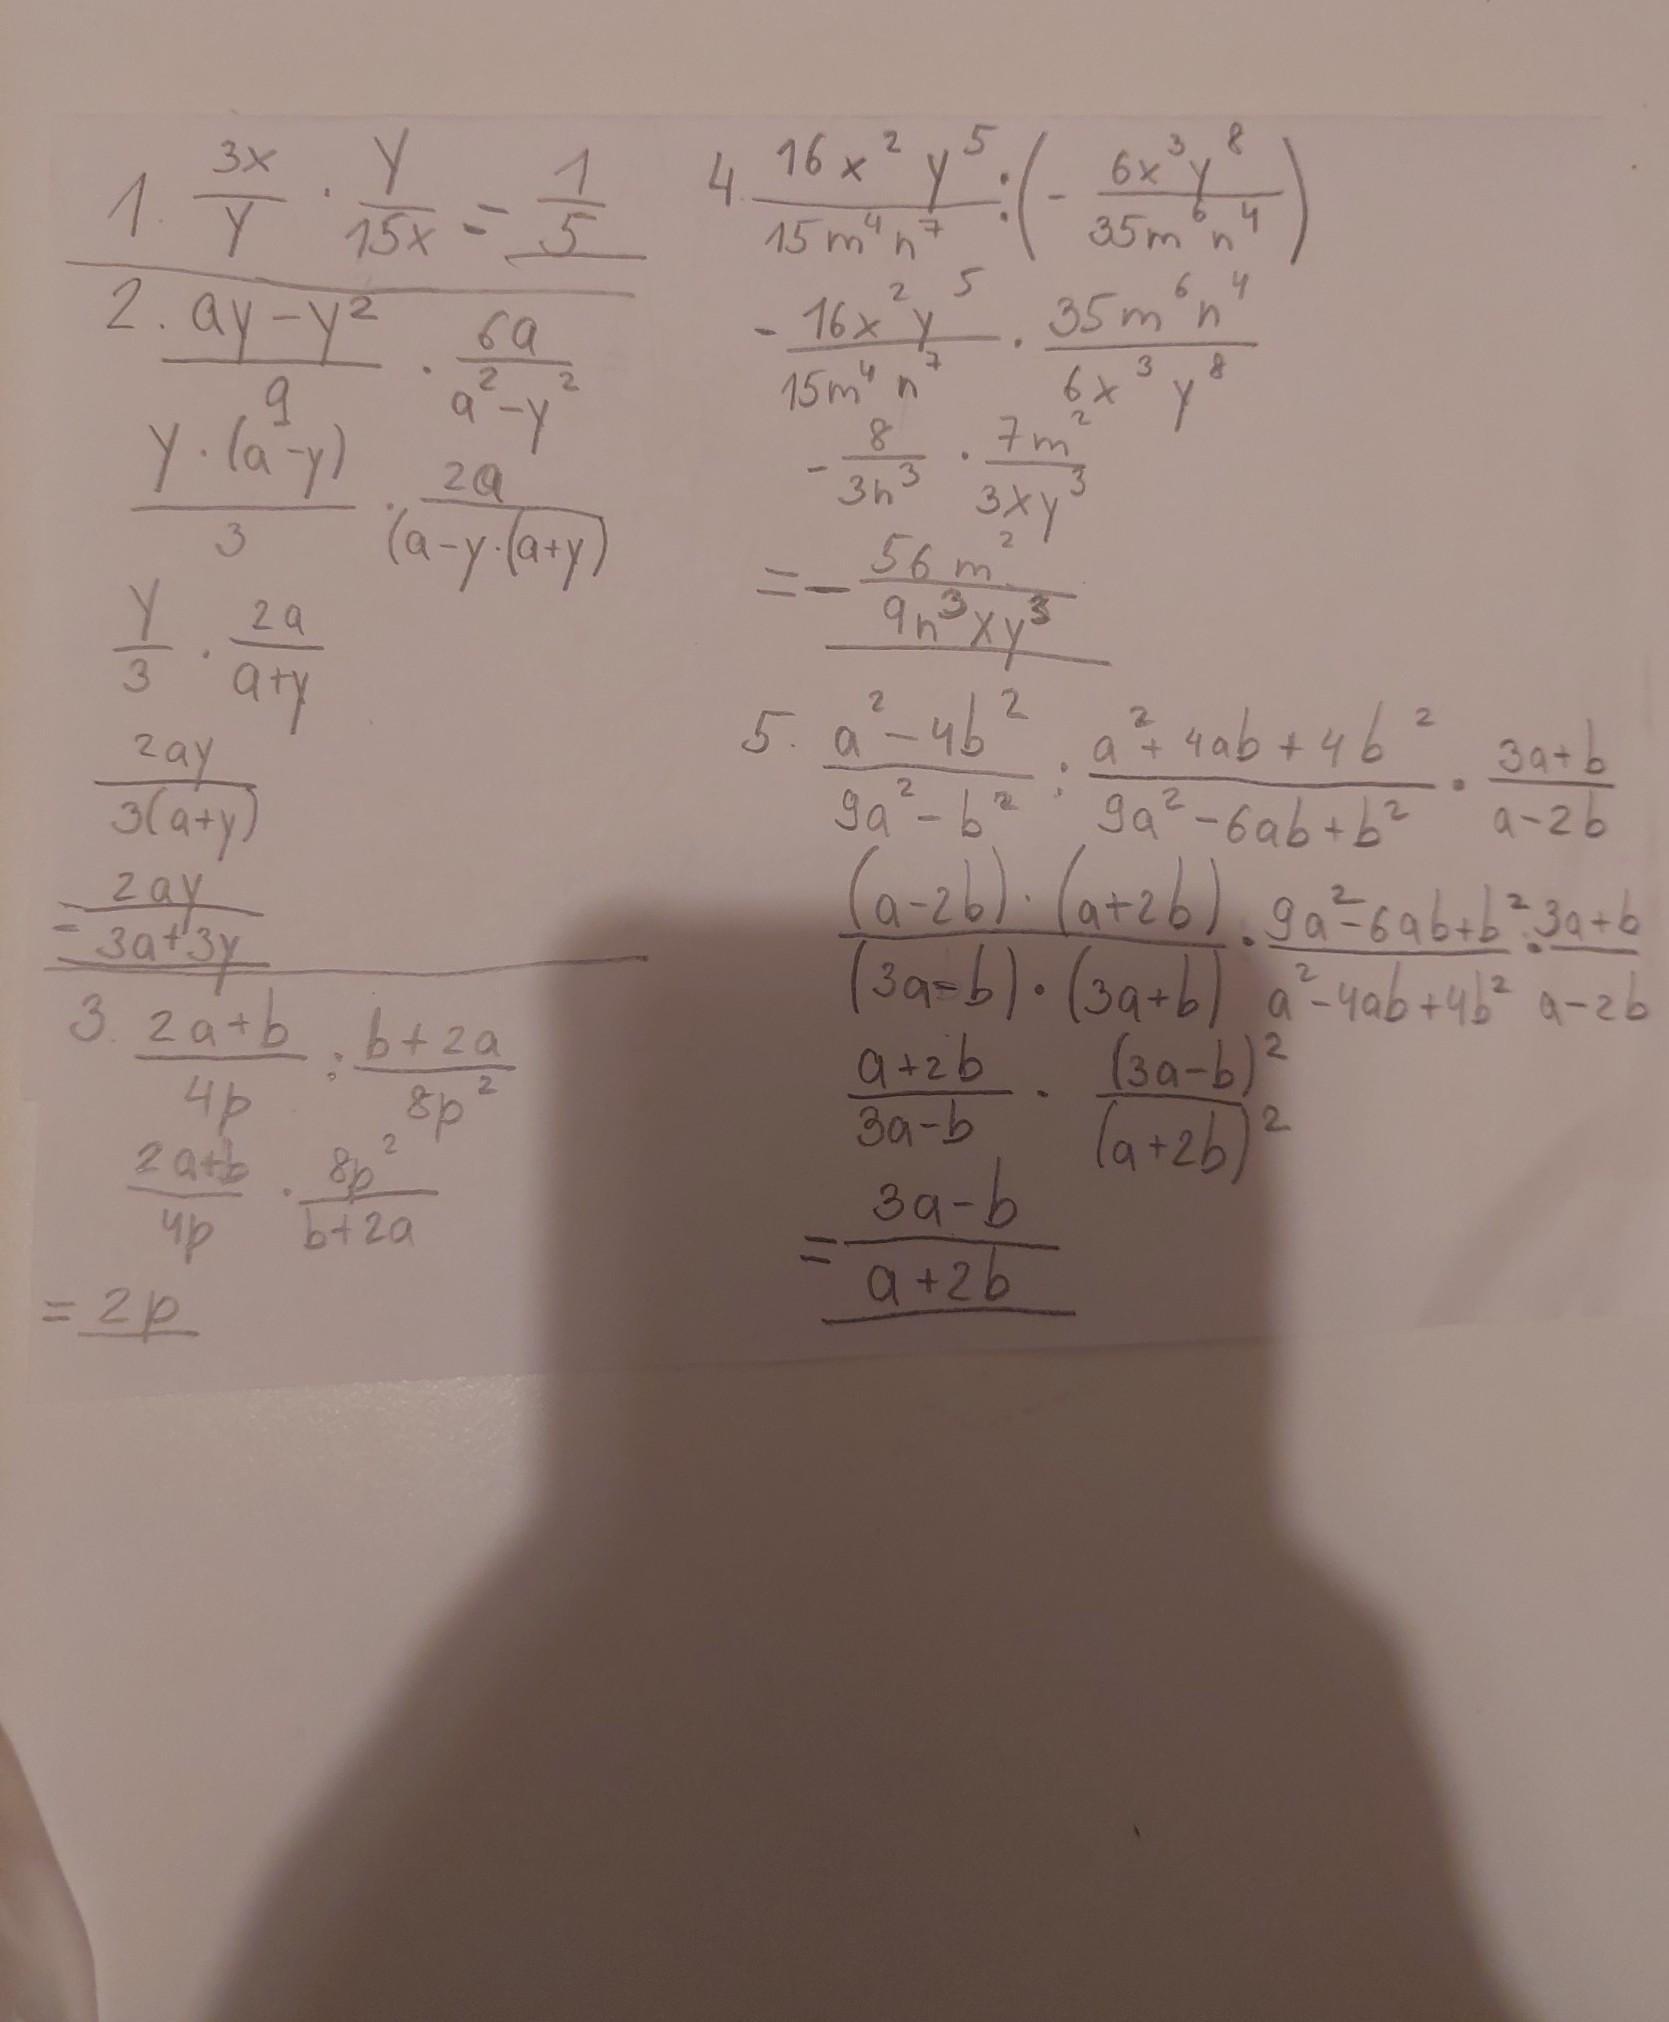 1. 3x/y · y/15x = 1/5
2. ay-y²/9 · 6a/a²-y²
y·(a-y)/3 · 2a/(a-y·(a+y)
y/3 · 2a/a+y
2ay/3(a+y)
= 2ay/3a+3y
3. 2a+b/4p : b+2a/8p²
2a+b/4p · 8p²/b+2a
= 2p
4. 16x²y⁵/15m⁴n⁷ : (- 6x³y⁸/35m⁶n⁴)
- 16x²y⁵/15m⁴n⁷ · 35m⁶n⁴/6x³y⁸
- 8/3n³ · 7m²/3xy³
= - 56m²/9n³xy³
5. a²-4b²/9a²-b² : a²+4ab+4b²/9a²-6ab+b² · 3a+b/a-2b
(a-2b)·(a+2b)/(3a-b)·(3a+b) · 9a²-6ab+b²/a²-4ab+4b² · 3a+b/a-2b
a+2b/3a-b · (3a-b)²/(a+2b)²
= 3a-b/a+2b